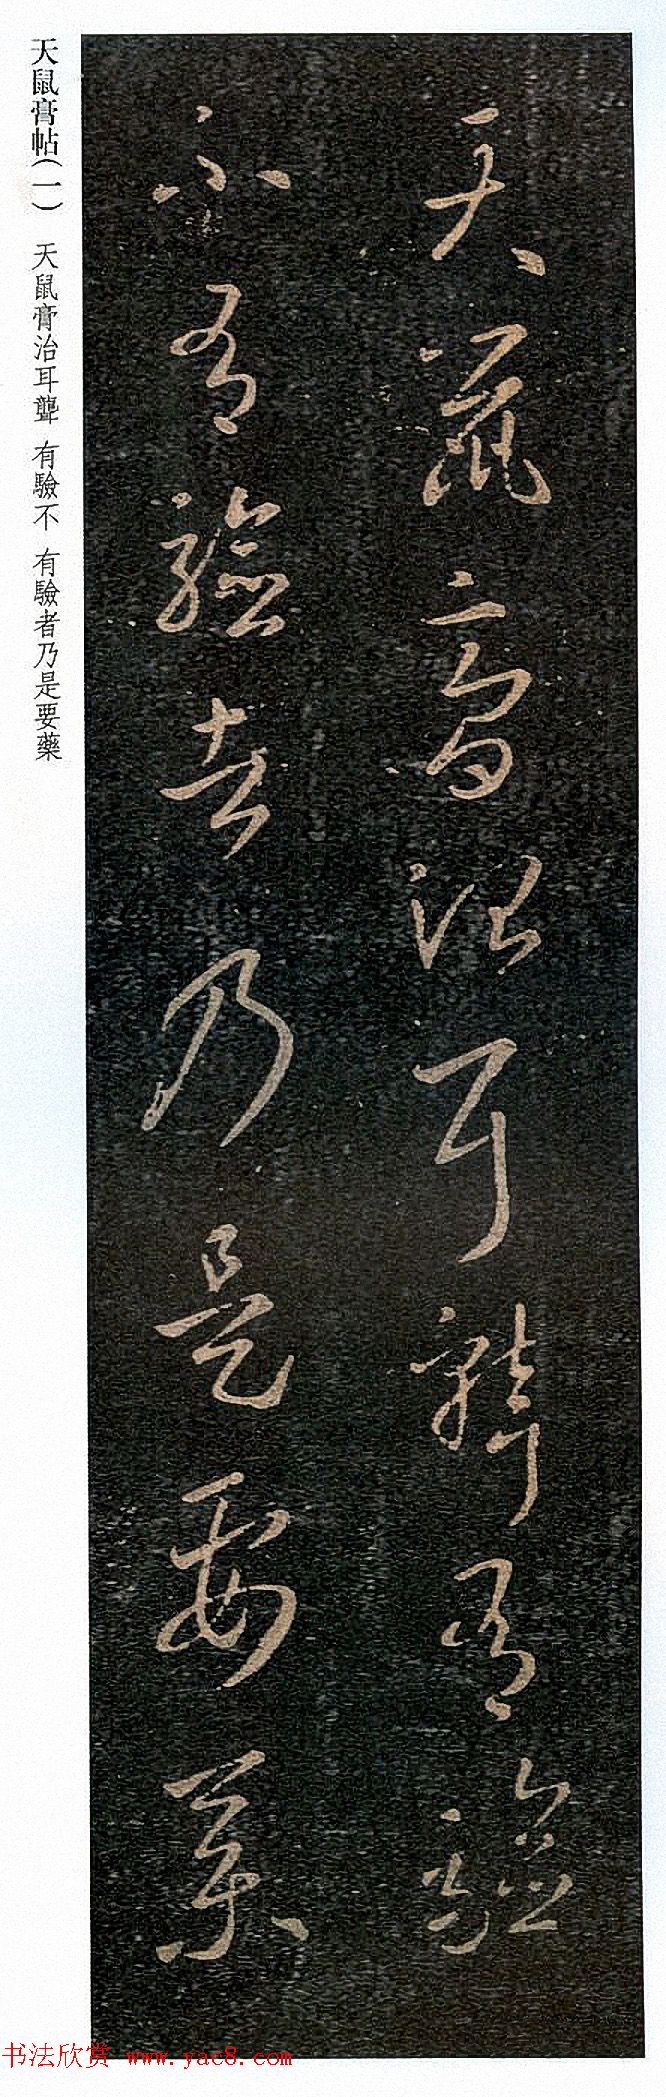 天鼠膏治耳聾有驗
不有驗者乃是要藥
天鼠膏帖(一) 天鼠膏治耳聾 有驗不 有驗者乃是要藥
书法欣赏 www.yac8.com